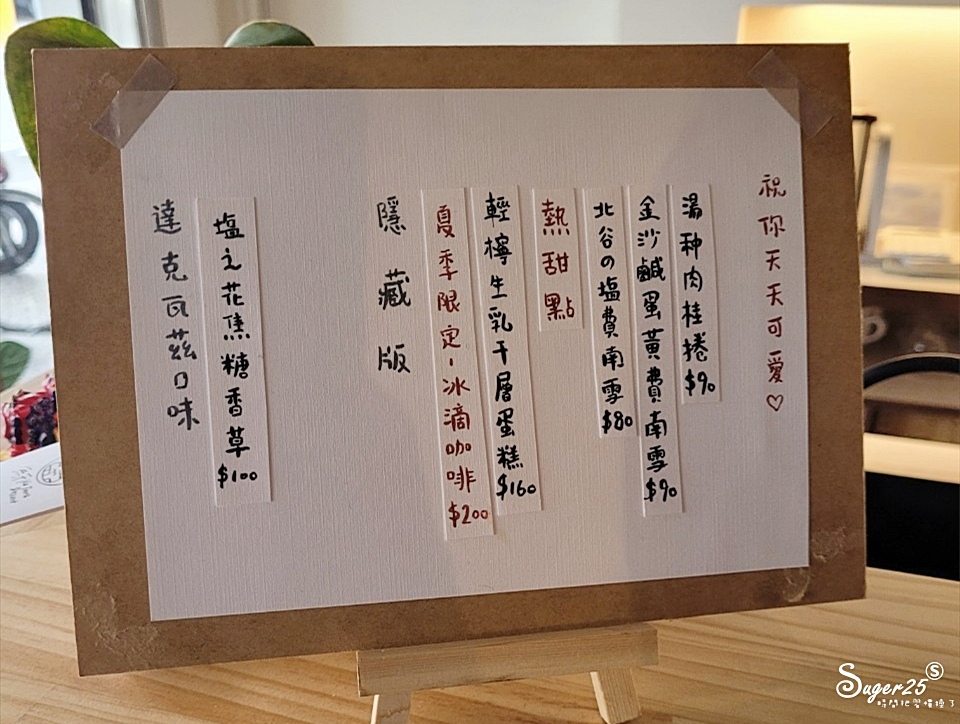 祝你天天可愛♡
湯种肉桂捲$90
金沙鹹蛋黃費南雪$90
北谷の塩費南雪$80
熱甜點
輕檸生乳千層蛋糕$160
夏季限定-冰滴咖啡$200
隱藏版
塩之花焦糖香草$100
達克瓦茲口味
Suger25
時間把習慣換了